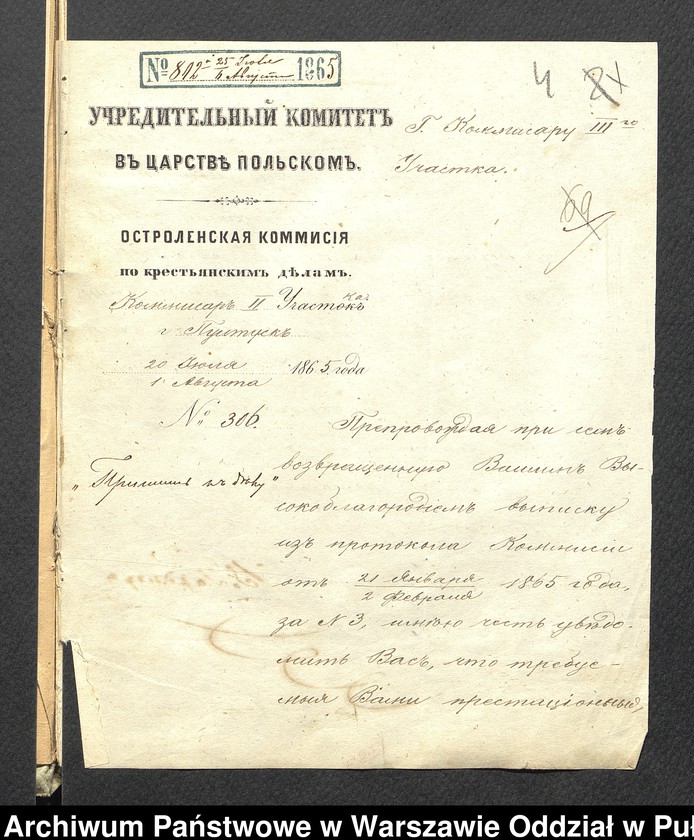 № 812 25 Іюля 6 Августа 1865
4
УЧРЕДИТЕЛЬНЫЙ КОМИТЕТЪ
ВЪ ЦАРСТВѢ ПОЛЬСКОМЪ.
Г. Коммисару III го
Участка.
69
ОСТРОЛЕНСКАЯ КОММИСІЯ
по крестьянскимъ дѣламъ.
Коммисаръ II Участка
г. Пултускъ
20 Іюля
1 Августа
1865 года
№ 306.
Препровождая при семъ
возвращенную Вашимъ Вы-
сокоблагородіемъ выписку
изъ протокола Коммисіи
отъ 21 Января 2 Февраля 1865 года,
за № 3, имѣю честь увѣдо-
мить Васъ, что требуе-
мыя Вами престаціонныя,
къ дѣлу"
Archiwum Państwowe w Warszawie Oddział w Pu